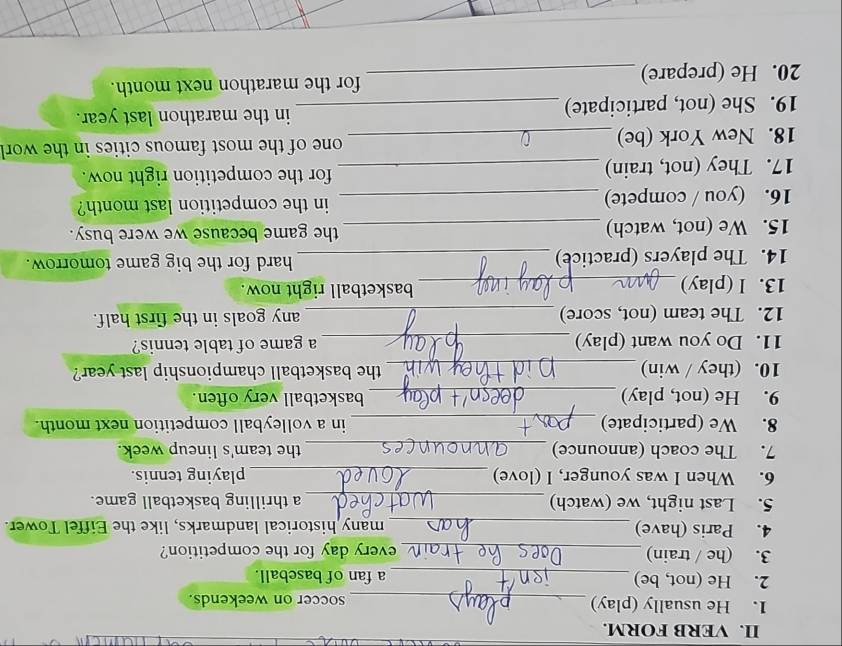 II. VERB FORM.
1. He usually (play) plays soccer on weekends.
2. He (not, be) isn't a fan of baseball.
3. (he / train) Does he train every day for the competition?
4. Paris (have) has many historical landmarks, like the Eiffel Tower.
5. Last night, we (watch) watched a thrilling basketball game.
6. When I was younger, I (love) loved playing tennis.
7. The coach (announce) announces the team's lineup week.
8. We (participate) part in a volleyball competition next month.
9. He (not, play) deesn't play basketball very often.
10. (they / win) Did they win the basketball championship last year?
11. Do you want (play) play a game of table tennis?
12. The team (not, score) any goals in the first half.
13. I (play) am playing basketball right now.
14. The players (practice) hard for the big game tomorrow.
15. We (not, watch) the game because we were busy.
16. (you / compete) in the competition last month?
17. They (not, train) for the competition right now.
18. New York (be) one of the most famous cities in the worl
19. She (not, participate) in the marathon last year.
20. He (prepare) for the marathon next month.